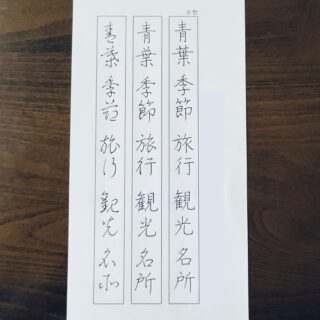 青葉季節旅行観光名所
青葉季節旅行観光名所
青葉季節旅行観光名所